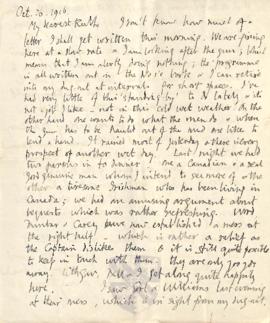 Oct. 26 1916
My dearest Ruth I don't know how much of
letter I shall get written this morning. We are firing
here at a slow rate & I am looking after the guns; which
means that I am clearly doing nothing; the programme
is all written out in the No 1's books & I can retire
into my dug out at intervals for short spaces. I've
had very little of this 'standing by' to N lately & it's
not a job I like in this cold wet weather. On the
other hand one wants to do what the men do & when
the gun has to be hauled out of the mud one likes to
lend a hand. It rained most of yesterday & there is every
prospect of another wet day. Last night we had
two parsons in to dinner; one a Canadian a real
good genuine man whom I intend to see more of & the
other a tiresome Irishman who has been living in
Canada; we had an amusing argument about
bequests which was rather refreshing. Wood
Dunbar & Carey have now established a mess at
the right half, which is rather a relief as
the Captain dislikes them & it is still quite possible
to keep in touch with them; they are only 300 yds
away. Lithgow, Bell & I get along quite happily
here. I saw Williams last evening
at their mess, which is in sight from my dug-out.